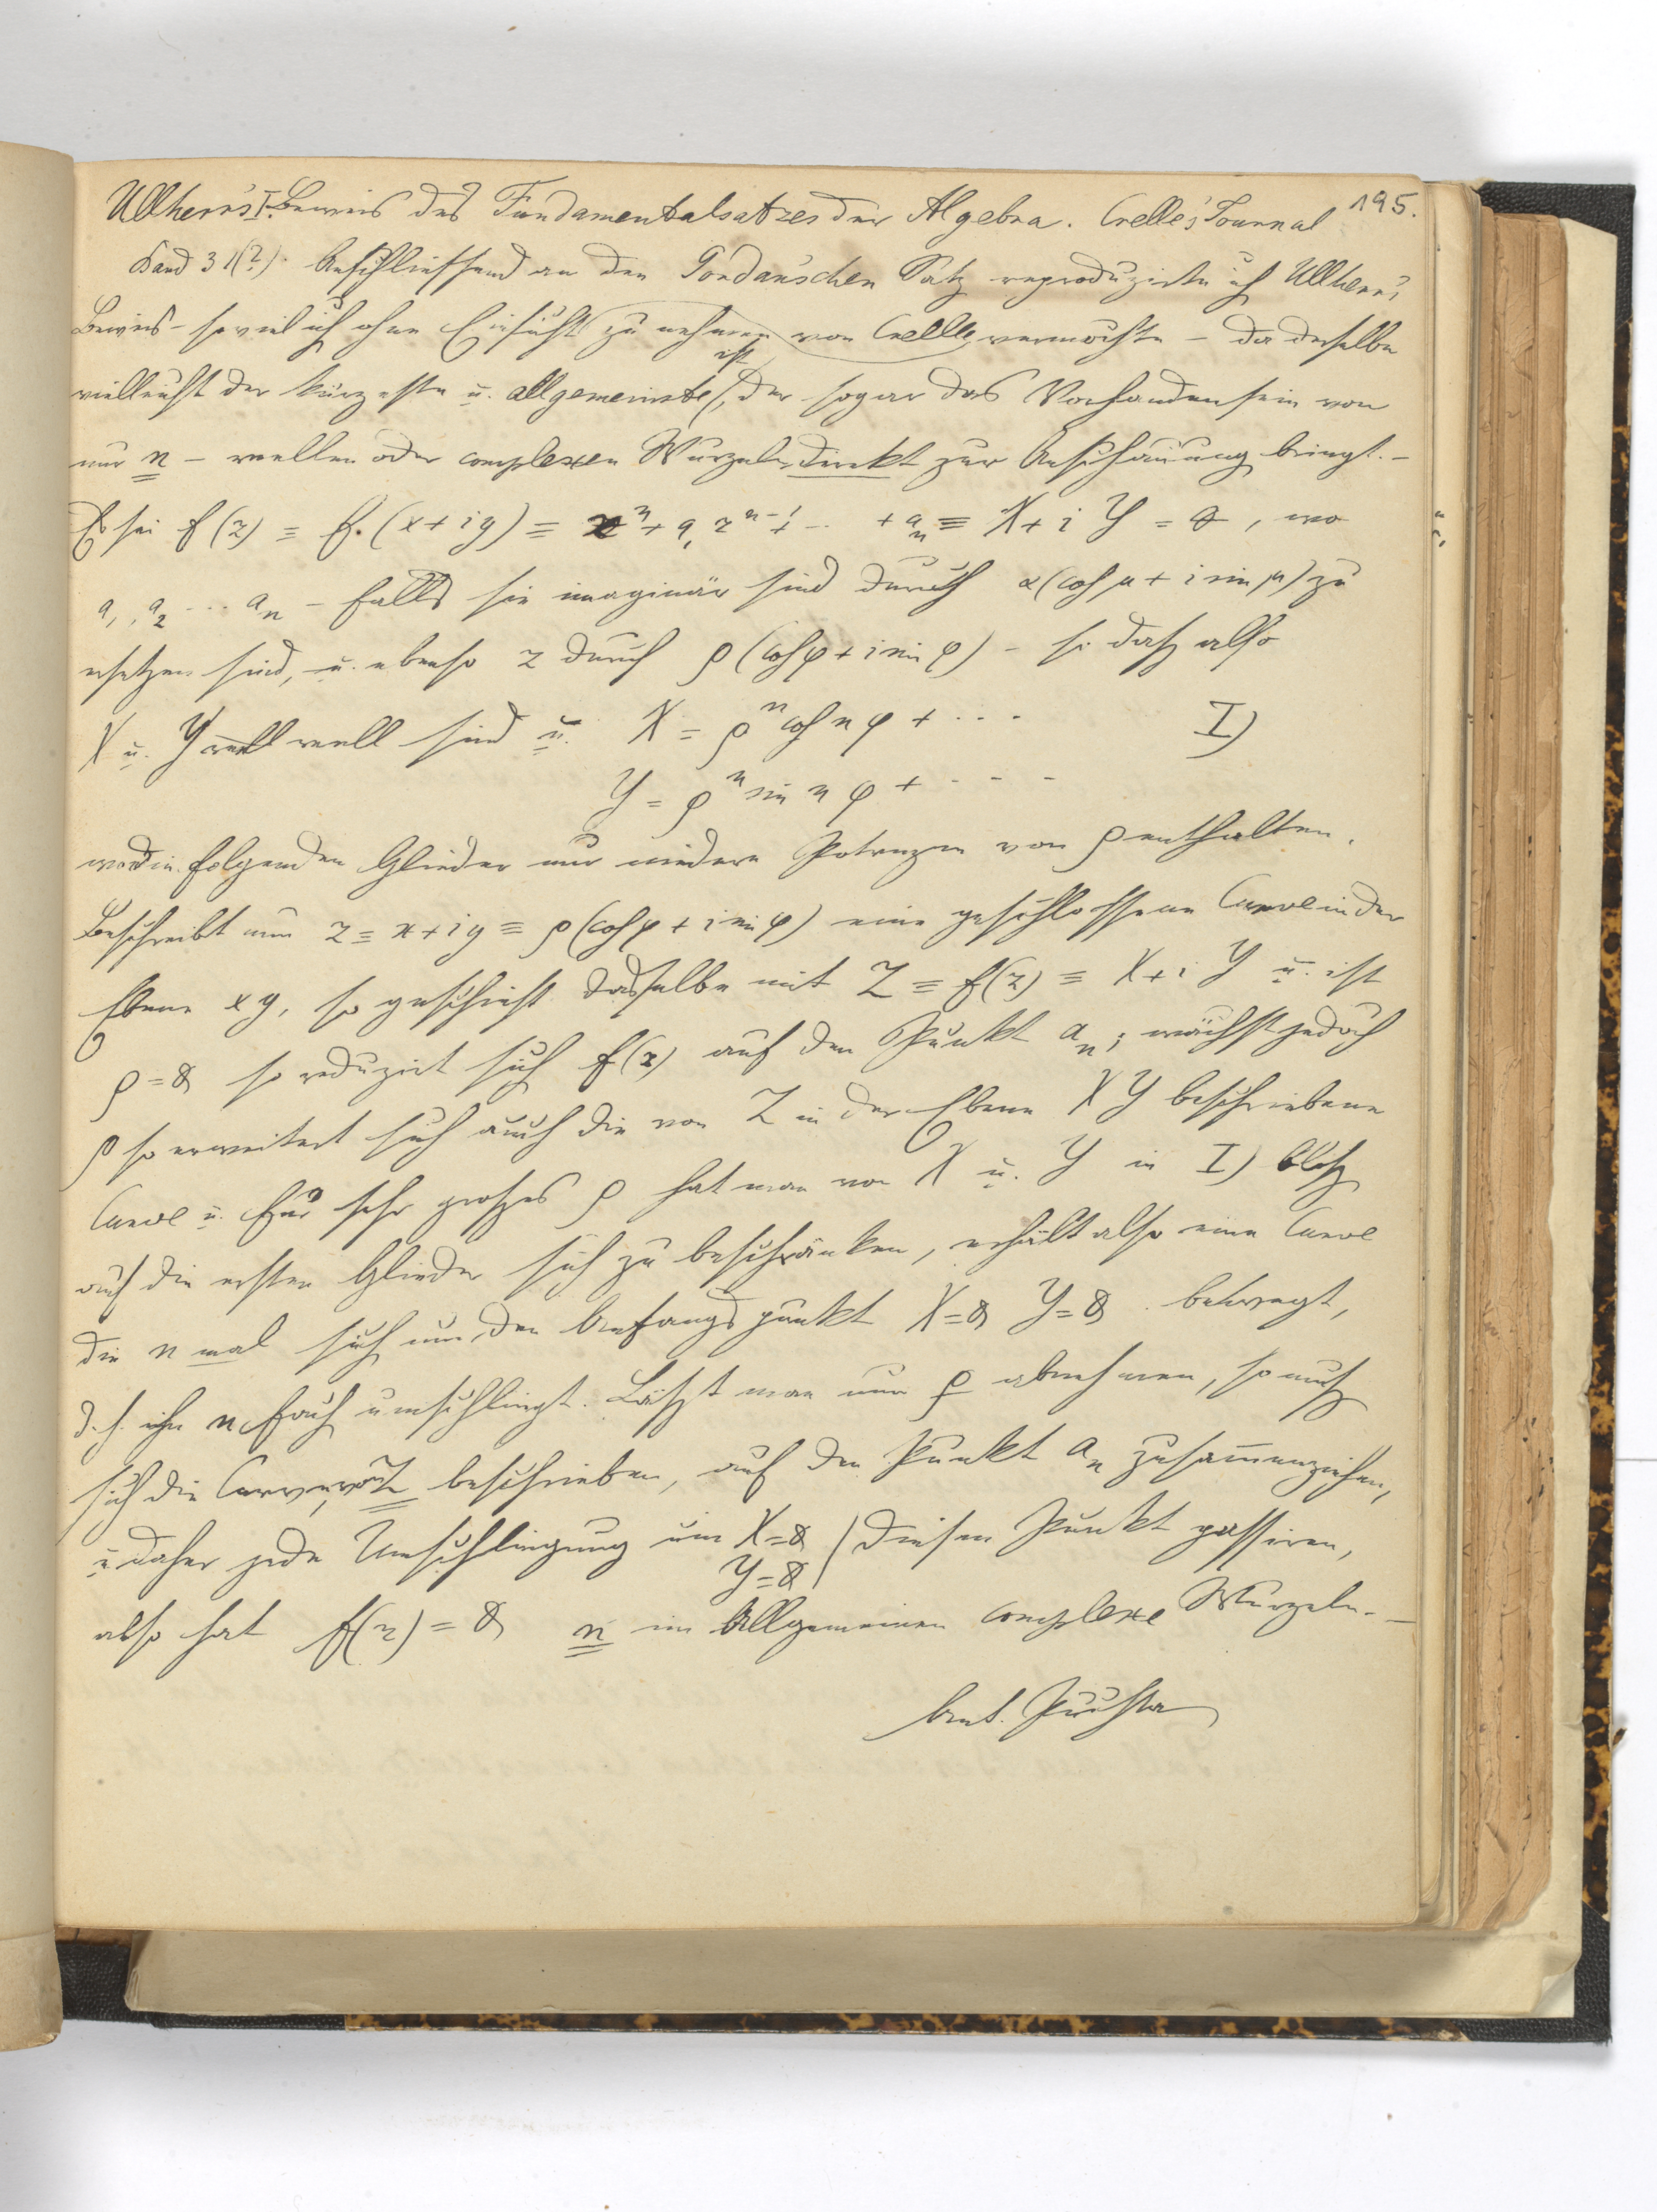 195.
Ullherr's I. Beweis des Fundamentalsatzes der Algebra. Crelle's Journal
Band 31(?). Anschließend an den Gordan'schen Satz reproduzirte ich Ullherr's
Beweis – soviel ich ohne Einsicht zu nehmen von Crelle vermochte – da derselbe
vielleicht der kürzeste u. allgemeinste ist, der sogar das Vorhandensein von
nur n – reellen oder complexen Wurzeln direkt zur Anschauung bringt. –
Es sei f(z) = f.(x+iy) = z^n + a_1 z^{n-1} + ... + a_n ≡ X + i Y = 0, wo
a_1, a_2 ... a_n – falls sie imaginär sind durch α(cos μ + i sin μ) zu
ersetzen sind, u. ebenso z durch ρ(cos φ + i sin φ) – so daß also
X u. Y reell sind u. X = ρ^n cos n φ + ... I)
Y = ρ^n sin n φ + - - -
wo die folgenden Glieder nur niedere Potenzen von ρ enthalten.
Beschreibt nun z = x+iy ≡ ρ(cos φ + i sin φ) eine geschlossene Curve in der
Ebene xy, so geschieht dasselbe mit Z = f(z) ≡ X + i Y u. ist
ρ = 0 so reduzirt sich f(z) auf den Punkt a_n; wächst jedoch
ρ so erweitert sich auch die von Z in der Ebene XY beschriebene
Curve u. für sehr großes ρ hat man von X u. Y in I) bloß
auf die ersten Glieder sich zu beschränken, erhält also eine Curve
die n mal sich um den Anfangspunkt X=0 Y=0 bewegt,
d. h. ihn n fach umschlingt. Läßt man nun ρ abnehmen, so muß
sich die Curve, von Z beschrieben, auf den Punkt a_n zusammenziehen,
u. daher jede Umschlingung um X=0 | diesen Punkt passiren,
Y=0 |
also hat f(z) = 0 n im Allgemeinen complexe Wurzeln. –
Ant. Puchta